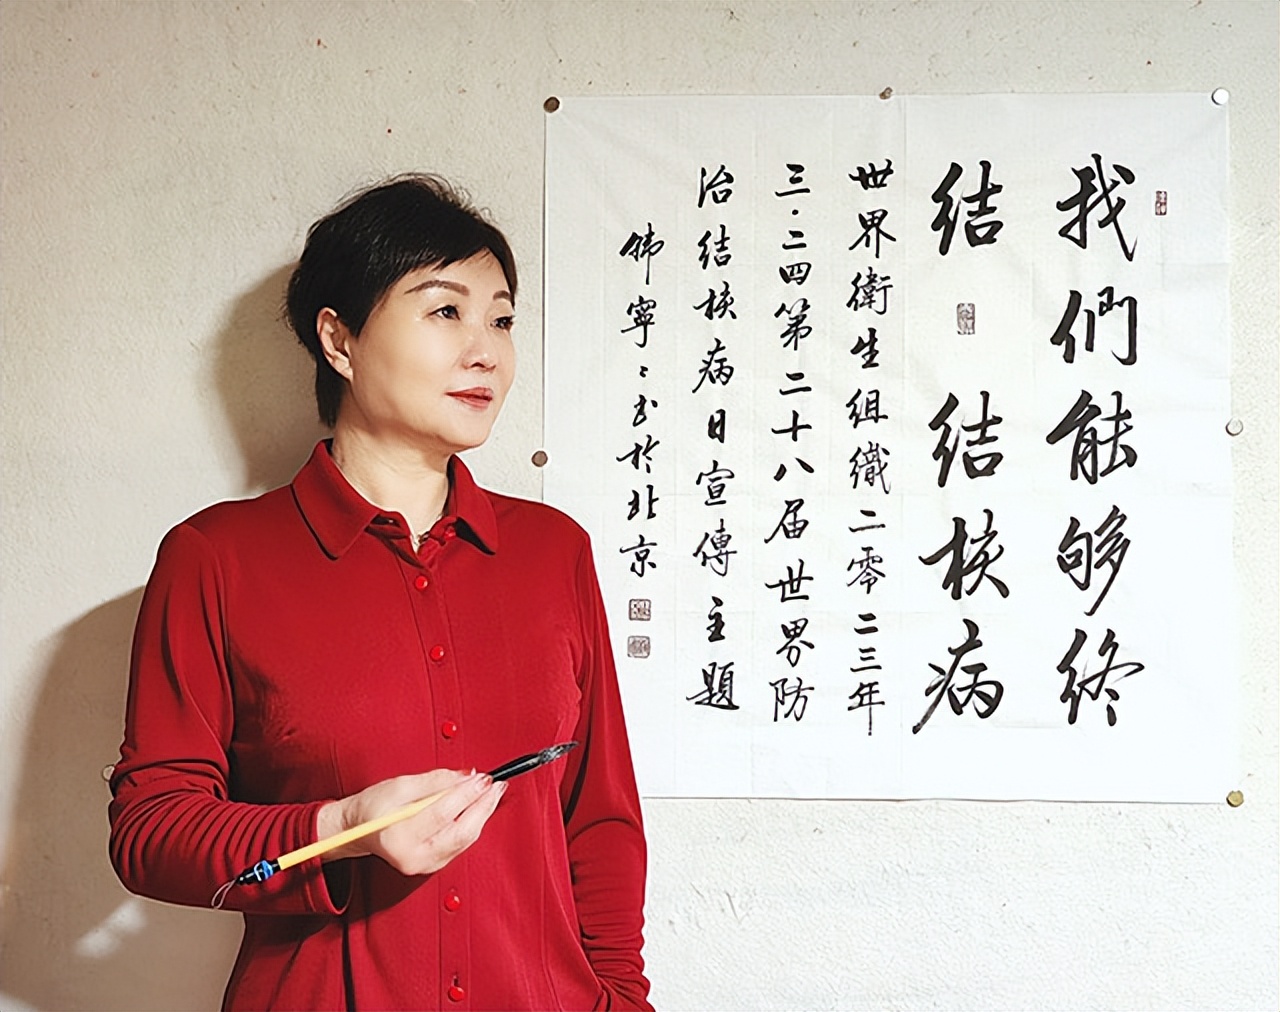 我們能够終
結 結核病
世界衛生組織二零二三年
三·二四第二十八届世界防
治結核病日宣傳主題
韩寧〻书於北京